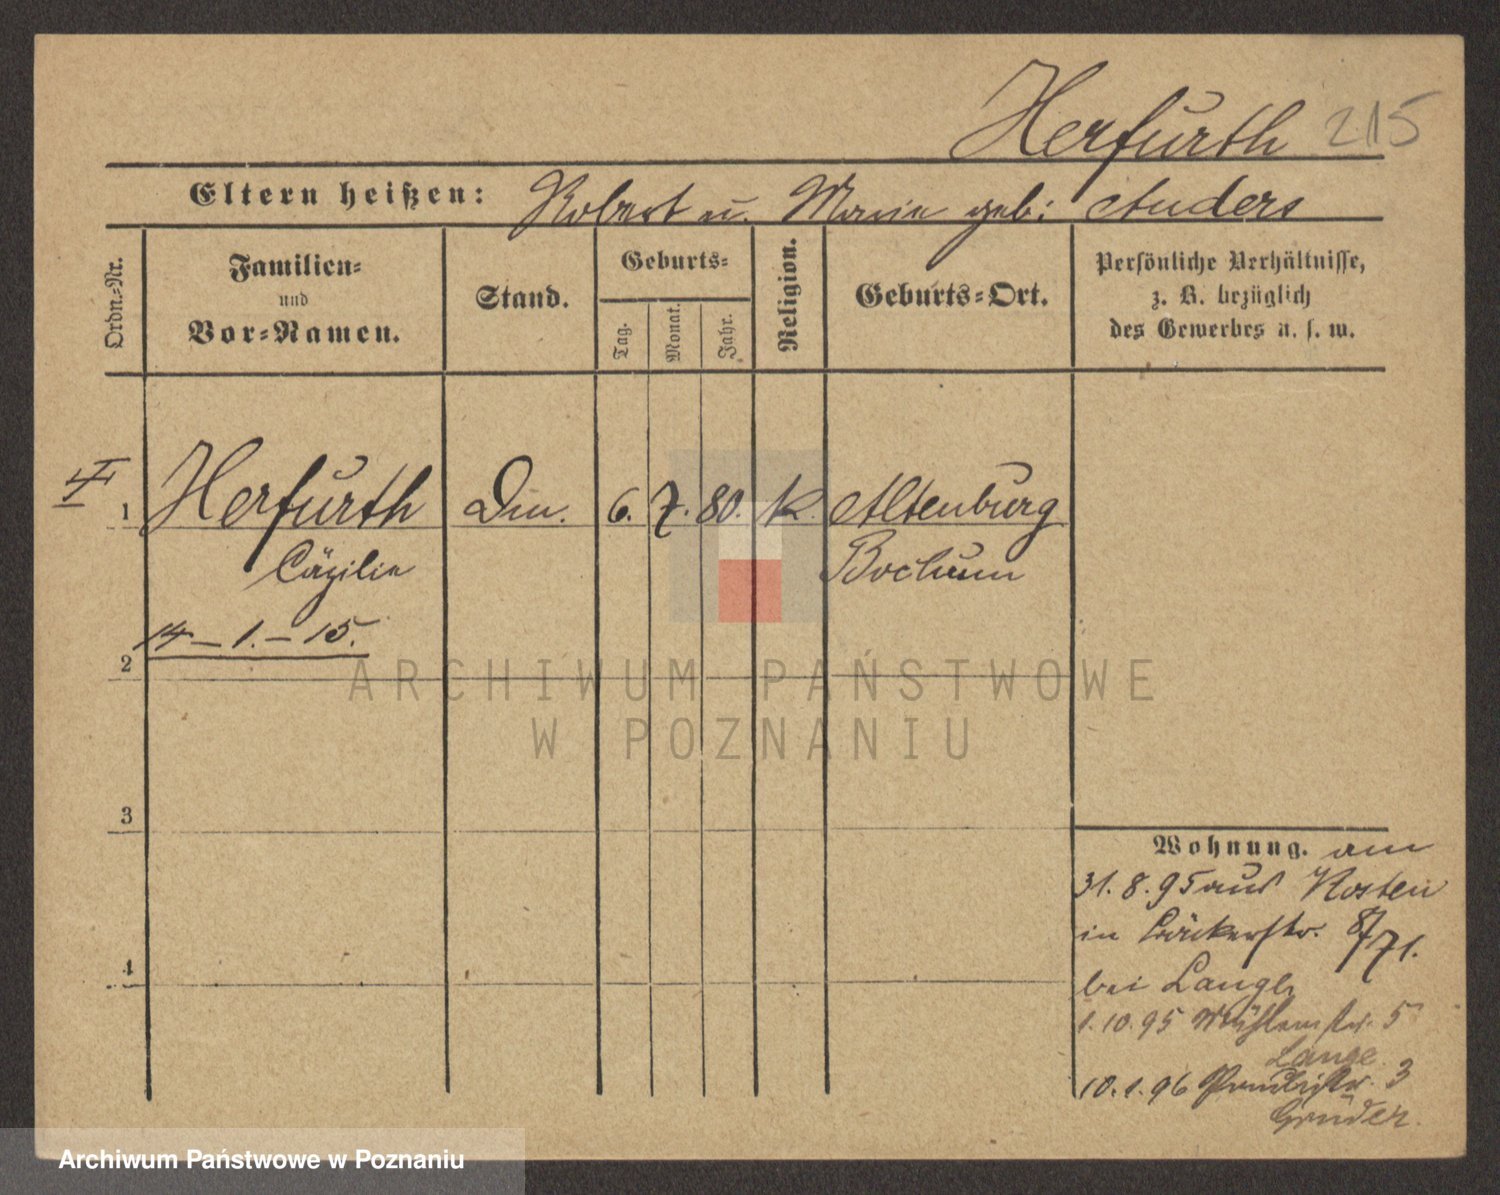 Herfurth 215
Eltern heißen: Robert u. Marie geb: Anders
Ordn.=Nr.
Familien=
und
Vor=Namen.
Stand.
Geburts=
Tag.
Monat.
Jahr.
Religion.
Geburts=Ort.
Persönliche Verhältnisse,
z. B. bezüglich
des Gewerbes u. s. w.
1 Herfurth Din. 6. 7. 80. k. Altenburg
Cäzilie Bochum
14 – 1. – 15.
2
ARCHIWUM PAŃSTWOWE
W POZNANIU
3
Wohnung. am
31. 8. 95 aus Kosten
in Bäckerstr. 8/71.
bei Lange
4
1. 10. 95 Mühlenstr. 5
Lange
10. 1. 96 3
Gruder.
Archiwum Państwowe w Poznaniu